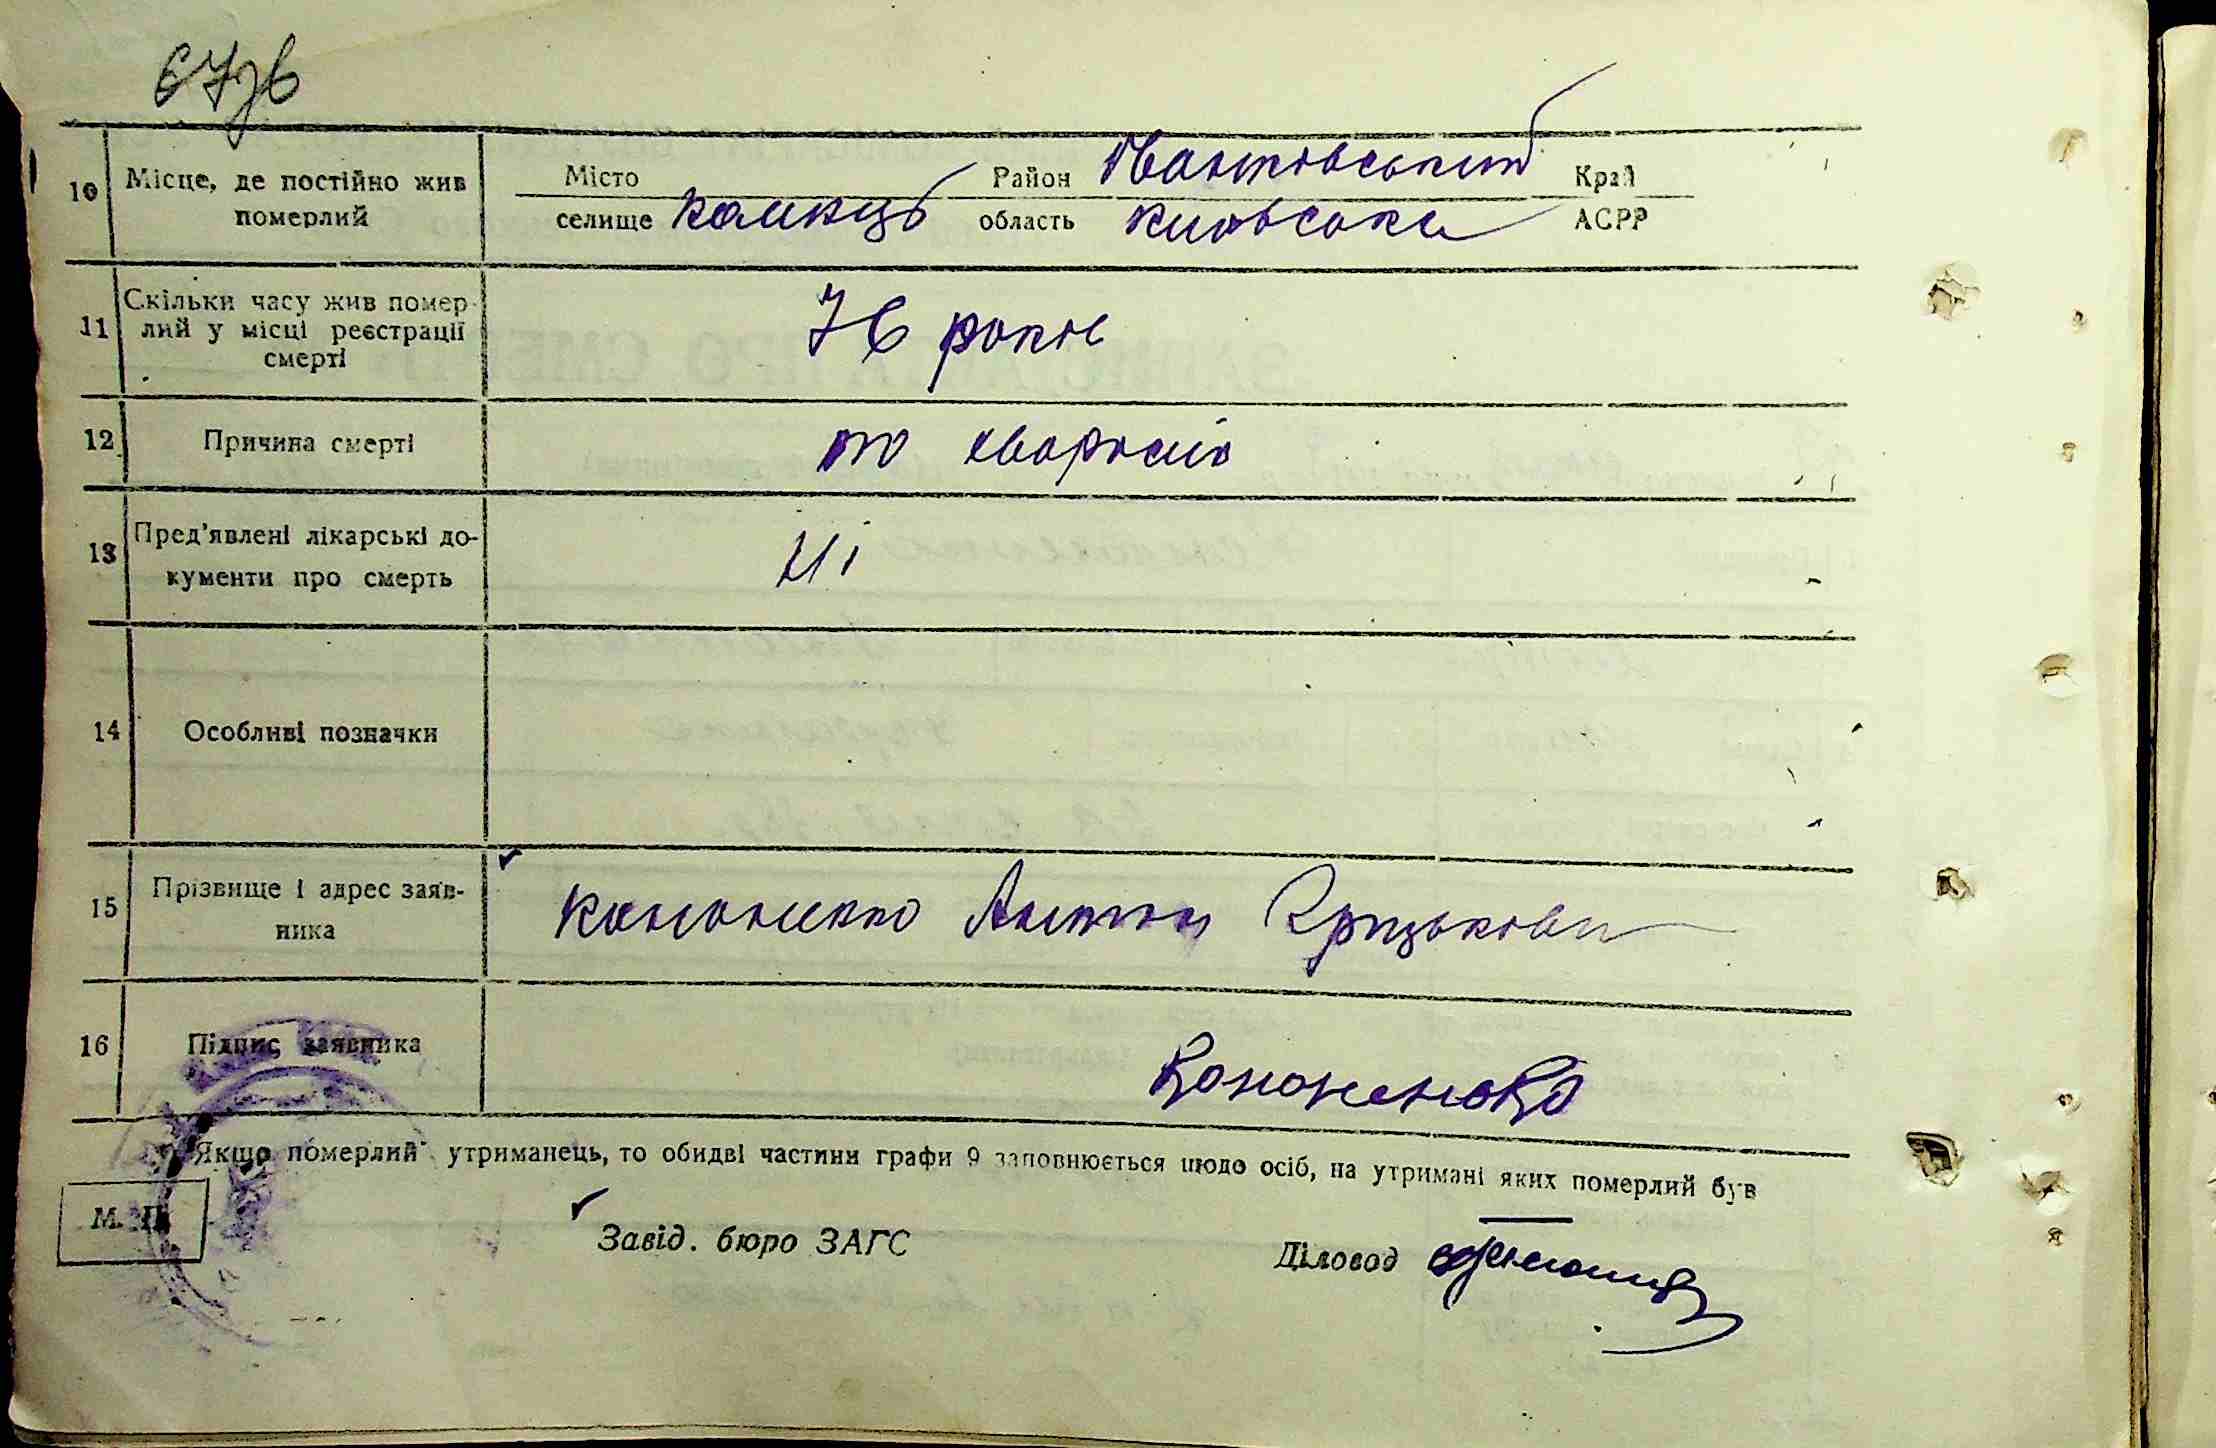 67зв
10 Місце, де постійно жив
померлий
Місто Район Іванківський Край
селище область Київська АСРР
11 Скільки часу жив помер-
лий у місці реєстрації
смерті
76 років
12 Причина смерті
по хворості
13 Пред'явлені лікарські до-
кументи про смерть
Ні
14 Особливі позначки
15 Прізвище і адрес заяв-
ника
Кононенко Антон Грицькови
16 Підпис заявника
Кононенько
Якщо померлий утриманець, то обидві частини графи 9 заповнюється щодо осіб, на утримані яких померлий був
М. П.
Завід. бюро ЗАГС
Діловод